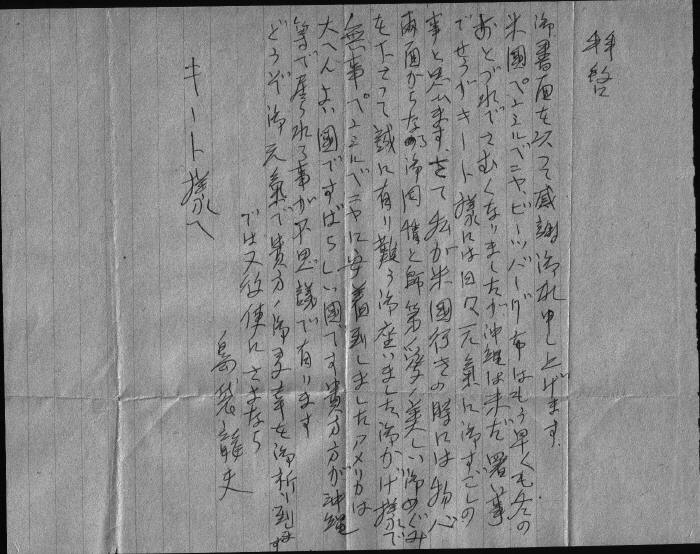 拝啓
御書面を以って感謝御礼申し上げます
米國ペンシルベニヤ、ピーツバーグ市はもう早くも冬の
おとづれでさむくなりましたが沖縄は未だ暑い事
でせうがキート様には日々元氣に御すごしの
事と思います、さて私が米國行きの時には物心
両面からなる御同情と師第愛の美しい御めぐみ
を下さって誠に有り難う御座いました御かげ様で
無事ペンシルベニヤに安着到しましたアメリカは
大へんよい國ですばらしい國です貴方方が沖縄
等で居られる事が不思議で有ります
どうぞ御元氣で貴方ノ御多幸を御祈り致ます
では又後便にさよなら
島袋
キート様へ